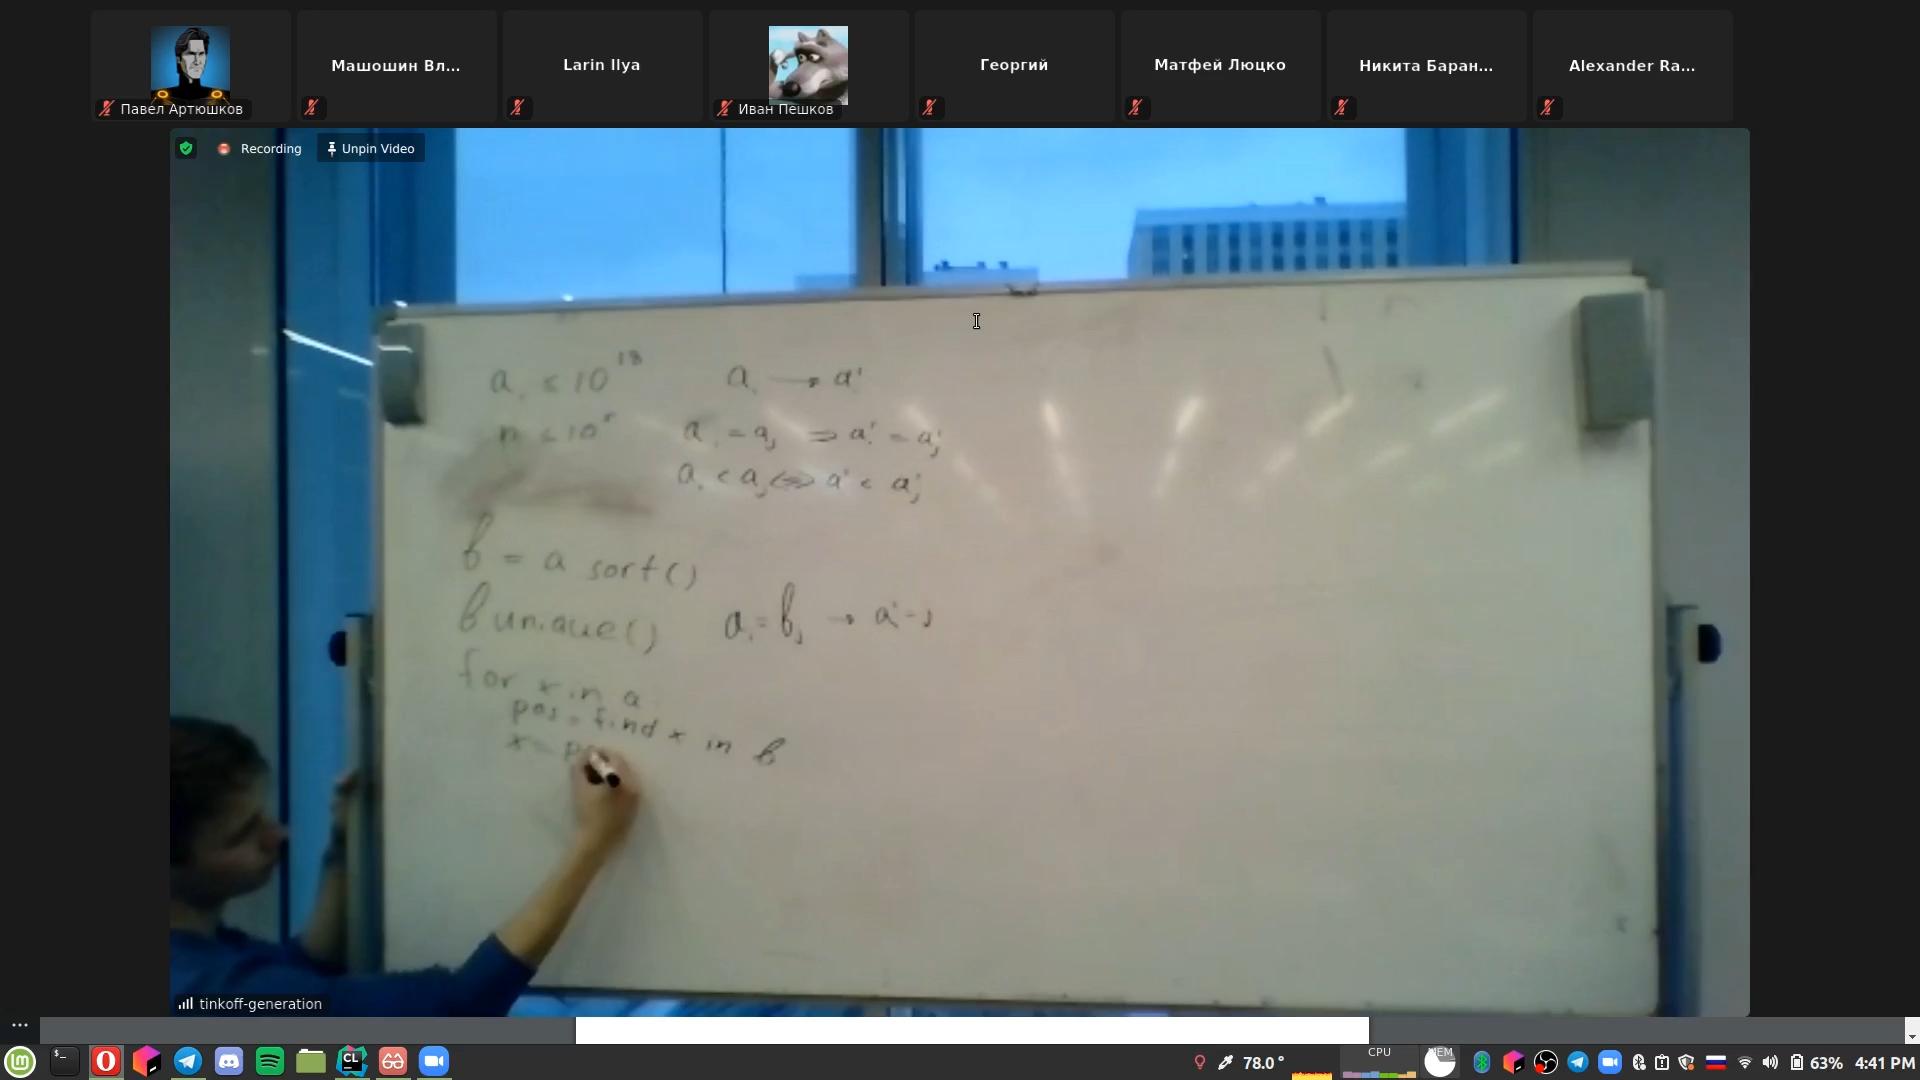 Павел Артюшков
Машошин Вл...
Larin Ilya
Иван Пешков
Георгий
Матфей Люцко
Никита Баран...
Alexander Ra...
Recording
Unpin Video
a_i ≤ 10^18 a_i → a'_i
n ≤ 10^5 a_i = a_j ⇒ a'_i = a'_j
a_i < a_j ⇔ a'_i < a'_j
b = a sort()
b unique() a_i = b_j → a'_i = j
for x in a
pos = find x in b
x = po
tinkoff-generation
CL
78.0°
CPU
MEM
63%
4:41 PM